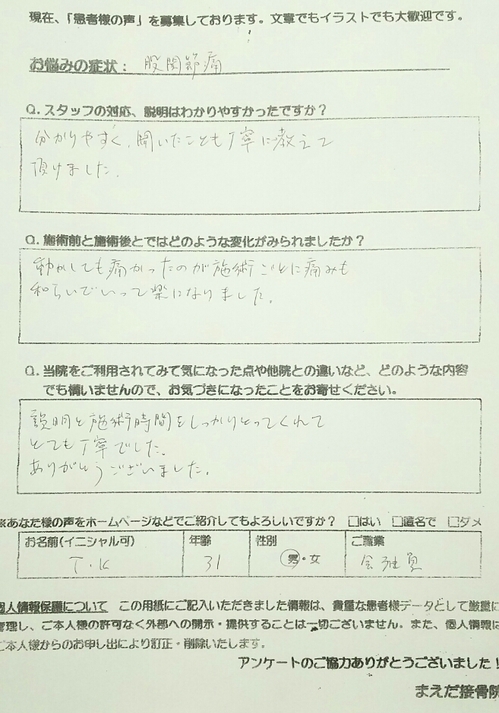 現在、「患者様の声」を募集しております。文章でもイラストでも大歓迎です。
お悩みの症状： 股関節痛
Q. スタッフの対応、説明はわかりやすかったですか？
分かりやすく、聞いたことも丁寧に教えて
頂けました。
Q. 施術前と施術後とではどのような変化がみられましたか？
動かしても痛かったのが施術ごとに痛みも
和らいでいって楽になりました。
Q. 当院をご利用されてみて気になった点や他院との違いなど、どのような内容
でも構いませんので、お気づきになったことをお寄せください。
説明と施術時間をしっかりとってくれて
とても丁寧でした。
ありがとうございました。
※あなた様の声をホームページなどでご紹介してもよろしいですか？ □はい □匿名で □ダメ
お名前(イニシャル可) 年齢 性別 ご職業
T・K 31 男・女 会社員
個人情報保護について この用紙にご記入いただきました情報は、貴重な患者様データとして厳重に
管理し、ご本人様の許可なく外部への開示・提供することは一切ございません。また、個人情報は
ご本人様からのお申し出により訂正・削除いたします。
アンケートのご協力ありがとうございました！
まえだ接骨院